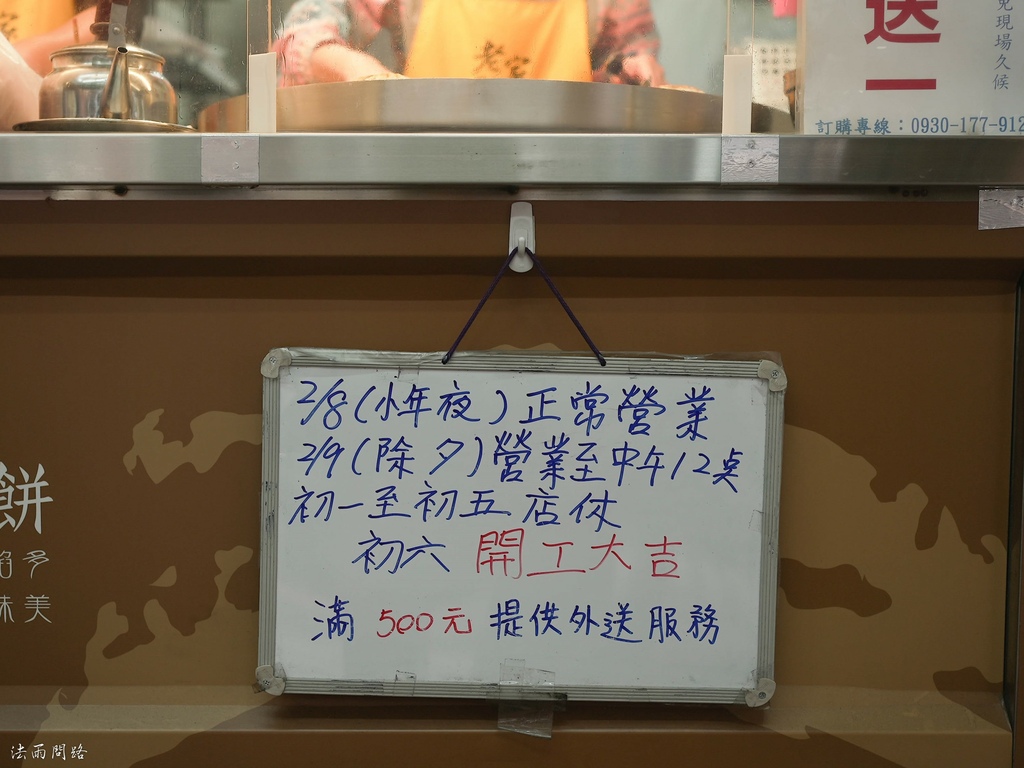 老宅
送
一
免現場久候
訂購專線：0930-177-912
2/8(小年夜)正常營業
2/9(除夕)營業至中午12點
初一至初五店休
初六 開工大吉
滿 500元 提供外送服務
餅
餡多
味美
法雨問路